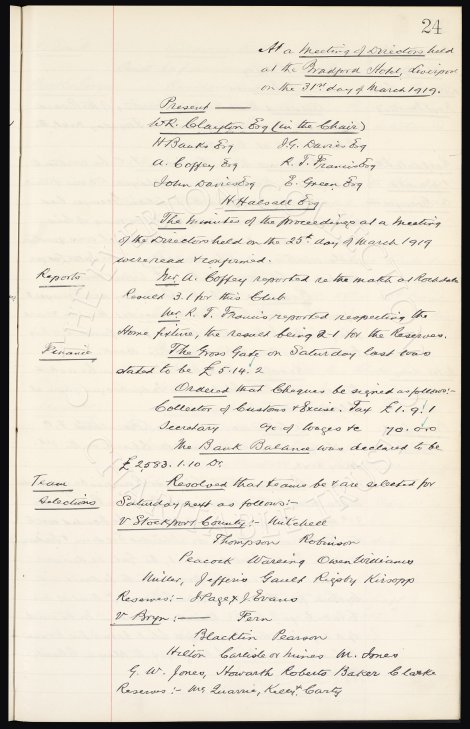 24
At a Meeting of Directors held
at the Bradford Hotel, Liverpool
on the 31st day of March 1919.
Present
W.R. Clayton Esq (in the Chair)
H Banks Esq J.G. Davies Esq
A. Coffey Esq R. T. Francis Esq
John Davies Esq E. Green Esq
H. Halsall Esq
The Minutes of the proceedings at a Meeting
of the Directors held on the 25th day of March 1919
were read & confirmed.
Reports Mr A. Coffey reported re the match at Rochdale
Result 3.1 for this Club
Mr R. T. Francis reported respecting the
Home fixture, the result being 2-1 for the Reserves.
Finance The Gross Gate on Saturday last was
stated to be £5.14.2
Ordered that Cheques be signed as follows:-
Collector of Customs & Excise. Tax £1.9.1
Secretary a/c of Wages &c 70.0.0
The Bank Balance was declared to be
£2,583.1.10 Dr.
Team Resolved that teams be & are selected for
Selections Saturday next as follows:-
V Stockport County:- Mitchell
Thompson Robinson
Peacock Wareing Owen Williams
Miller, Jefferis Gault Rigsby Kirsopp
Reserves:- J Page & J. Evans
V Bryn:- Fern
Blacktin Pearson
Hilton Carlisle or Mines M. Jones
G. W. Jones, Howarth Roberts Baker Clarke
Reserves:- Mc Quarrie, Kelly & Carty